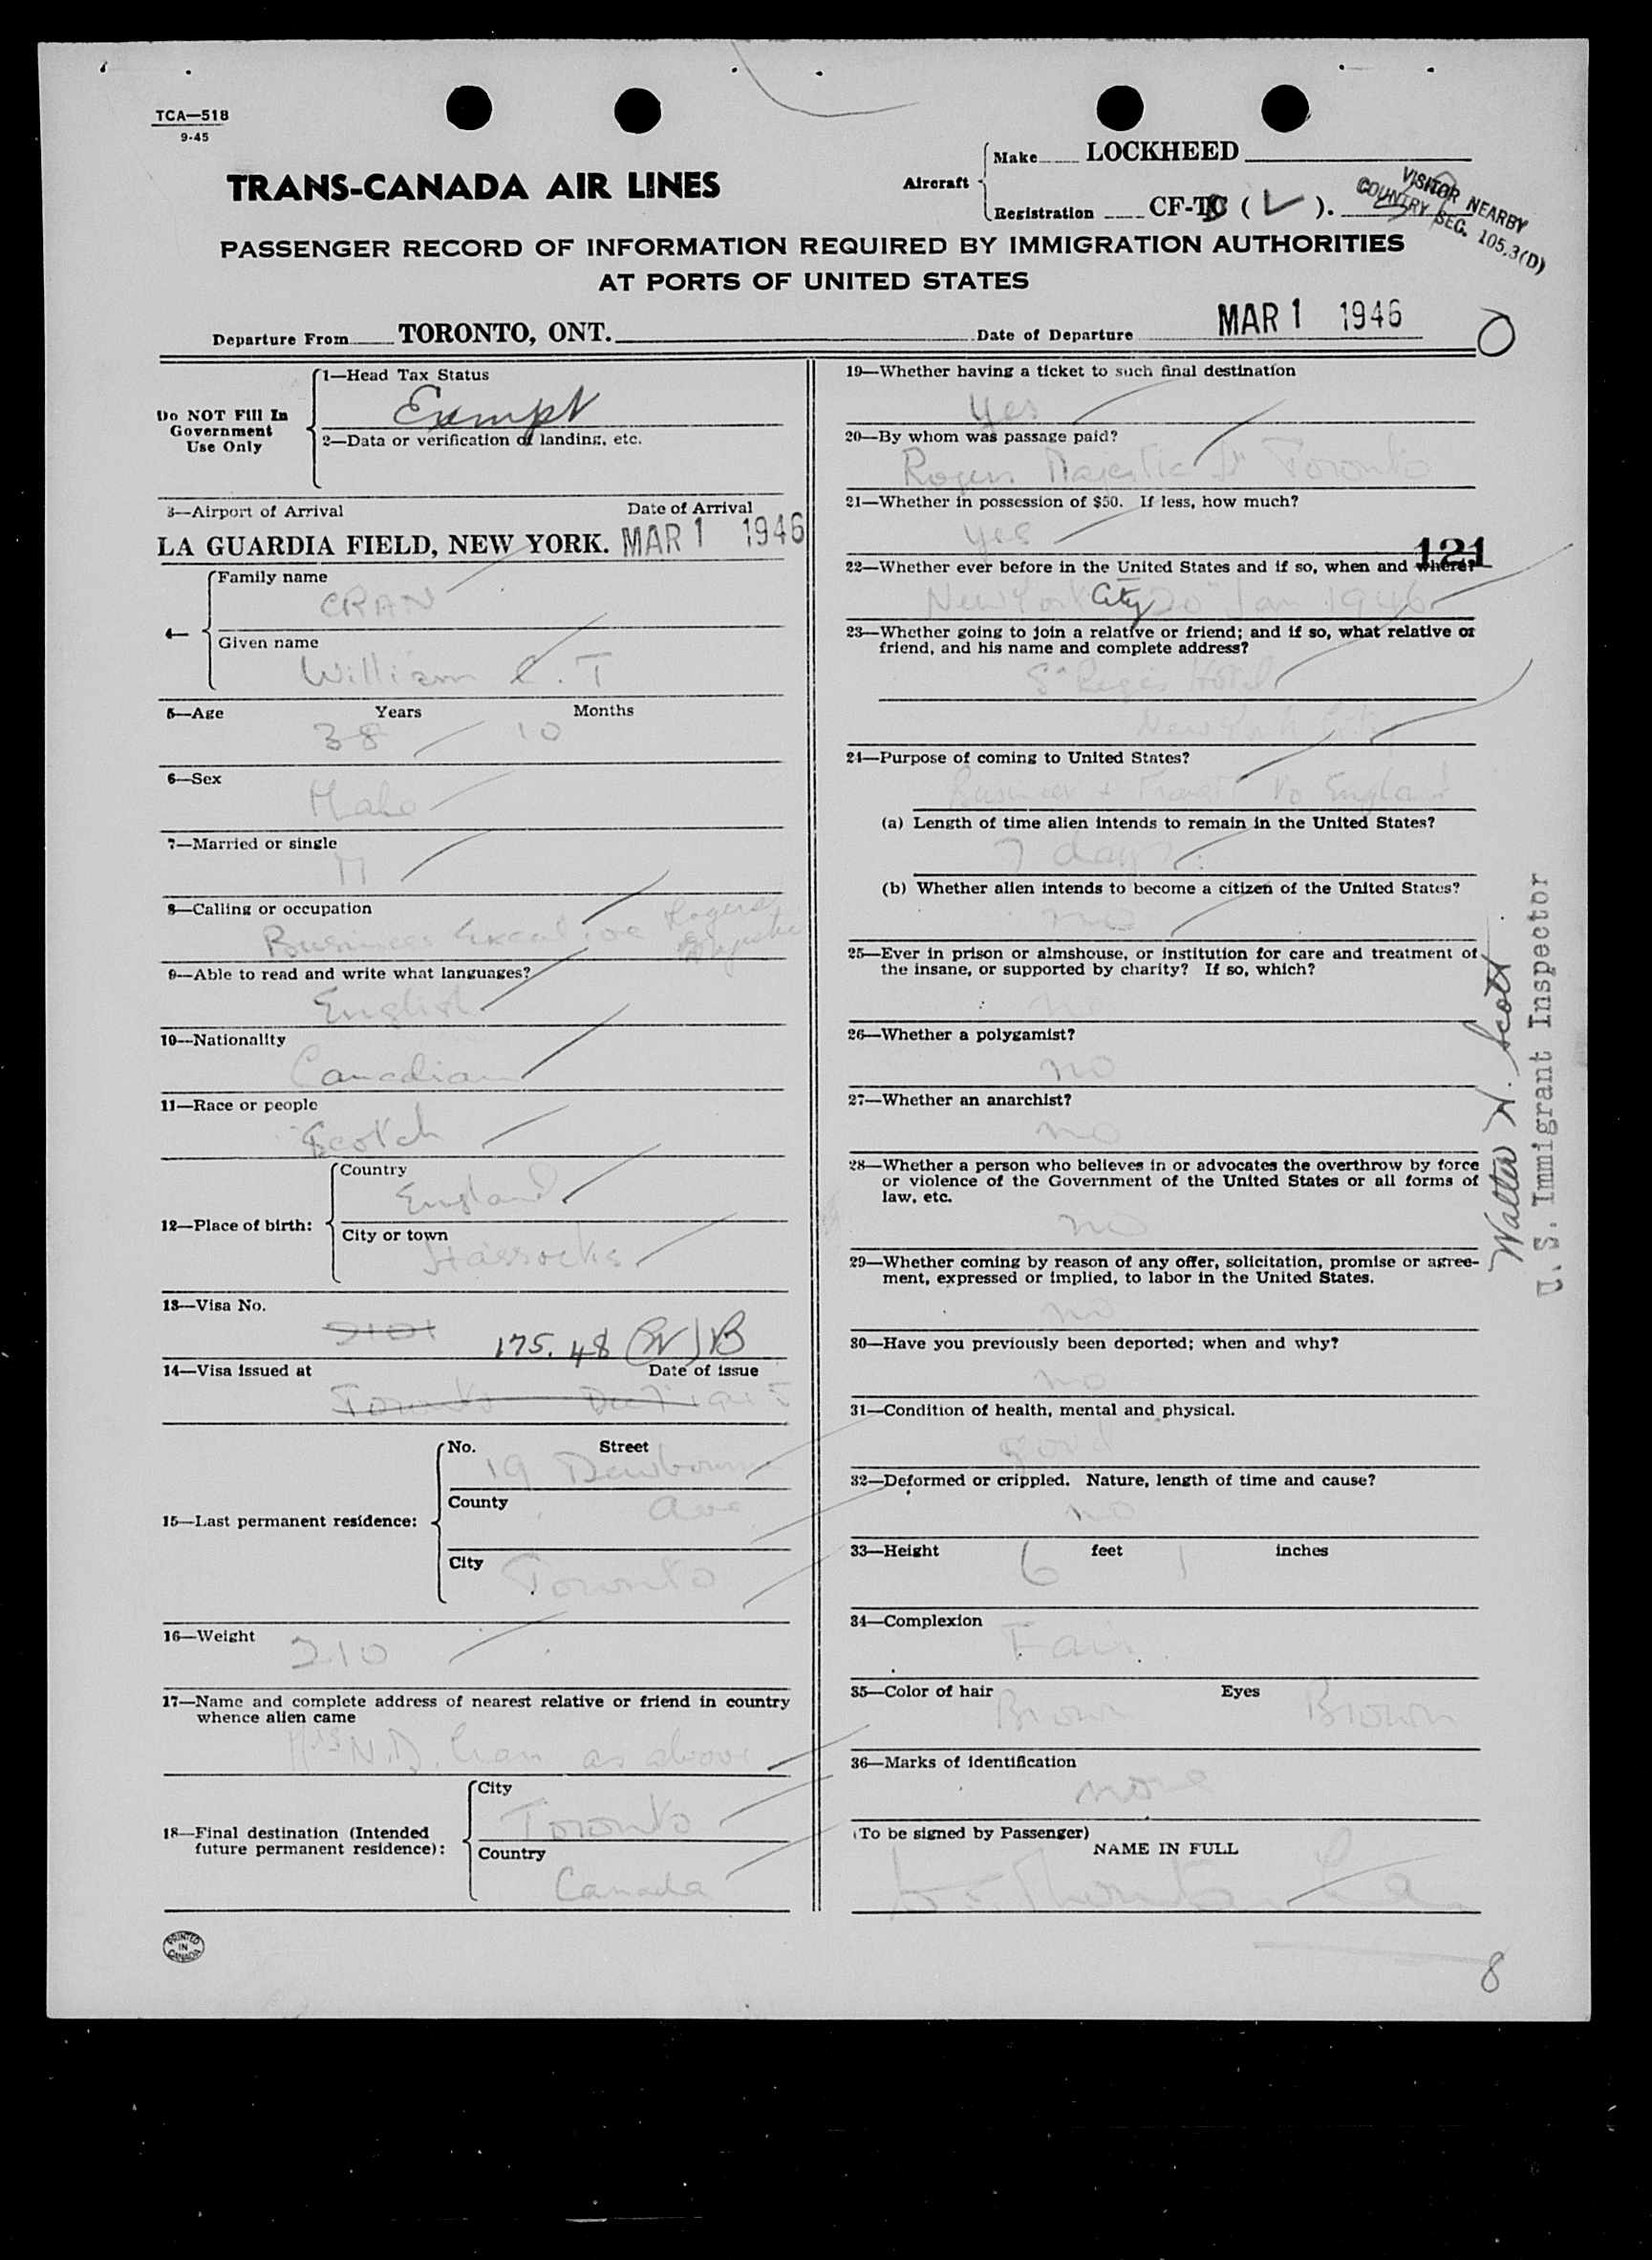 TCA—518
9-45
TRANS-CANADA AIR LINES
Aircraft
Make LOCKHEED
Registration CF-T ( L ).
VISITOR NEARBY
COUNTRY SEC. 105.3(D)
PASSENGER RECORD OF INFORMATION REQUIRED BY IMMIGRATION AUTHORITIES
AT PORTS OF UNITED STATES
Departure From TORONTO, ONT. Date of Departure MAR 1 1946
Do NOT Fill In
Government
Use Only
1—Head Tax Status
Exempt
2—Data or verification of landing, etc.
3—Airport of Arrival Date of Arrival
LA GUARDIA FIELD, NEW YORK. MAR 1 1946
4—
Family name
CRAN
Given name
William C. T
5—Age Years Months
38 10
6—Sex
Male
7—Married or single
M
8—Calling or occupation
Business Executive Rogers
Majestic
9—Able to read and write what languages?
English
10—Nationality
Canadian
11—Race or people
Scotch
12—Place of birth:
Country
England
City or town
Hassocks
13—Visa No.
175.48 (W) B
14—Visa issued at Date of issue
Toronto Dec 7 1945
15—Last permanent residence:
No. Street
19 Dewbourne
County
Ave
City
Toronto
16—Weight
210
17—Name and complete address of nearest relative or friend in country
whence alien came
Mrs N.D. Cran as above
18—Final destination (Intended
future permanent residence):
City
Toronto
Country
Canada
PRINTED
IN
CANADA
19—Whether having a ticket to such final destination
Yes
20—By whom was passage paid?
Rogers Majestic Toronto
21—Whether in possession of $50. If less, how much?
yes
121
22—Whether ever before in the United States and if so, when and where?
New York City 20 Jan 1946
23—Whether going to join a relative or friend; and if so, what relative or
friend, and his name and complete address?
St Regis Hotel
New York City
24—Purpose of coming to United States?
Business + Transit to England
(a) Length of time alien intends to remain in the United States?
7 days
(b) Whether alien intends to become a citizen of the United States?
no
25—Ever in prison or almshouse, or institution for care and treatment of
the insane, or supported by charity? If so, which?
no
26—Whether a polygamist?
no
27—Whether an anarchist?
no
28—Whether a person who believes in or advocates the overthrow by force
or violence of the Government of the United States or all forms of
law, etc.
no
29—Whether coming by reason of any offer, solicitation, promise or agree-
ment, expressed or implied, to labor in the United States.
no
30—Have you previously been deported; when and why?
no
31—Condition of health, mental and physical.
good
32—Deformed or crippled. Nature, length of time and cause?
no
33—Height 6 feet 1 inches
34—Complexion
Fair
35—Color of hair Eyes
Brown Brown
36—Marks of identification
none
(To be signed by Passenger)
NAME IN FULL
8
Walter H. Scott
U. S. Immigrant Inspector